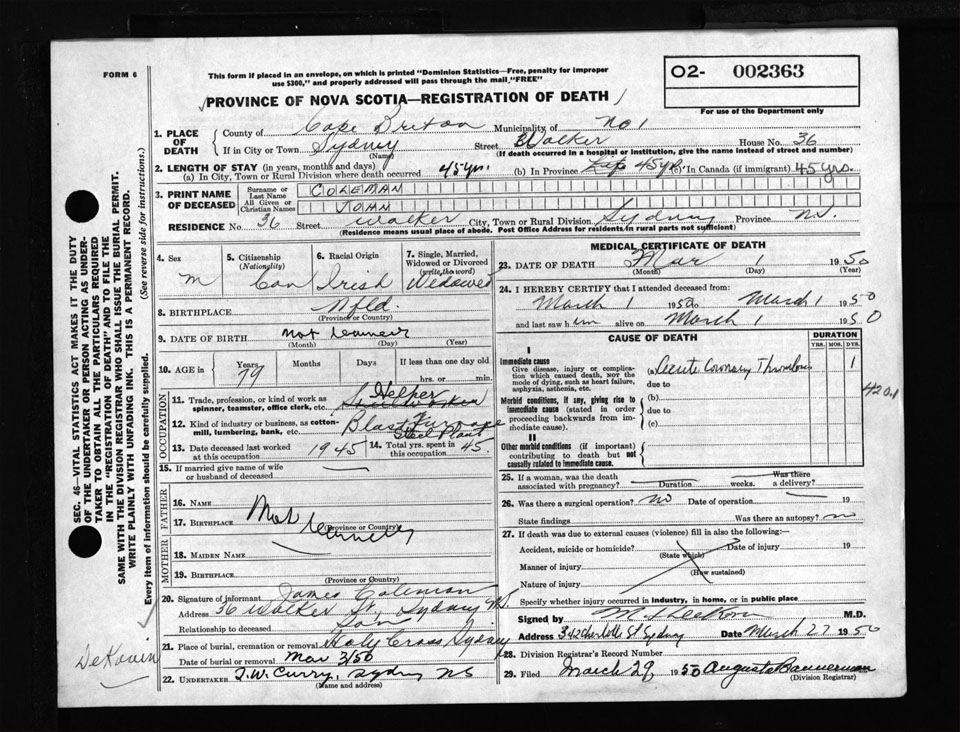 FORM 6
This form if placed in an envelope, on which is printed "Dominion Statistics—Free, penalty for improper
use $300," and properly addressed will pass through the mail "FREE"
02- 002363
For use of the Department only
PROVINCE OF NOVA SCOTIA—REGISTRATION OF DEATH
1. PLACE OF DEATH
County of Cape Breton Municipality of No 1
If in City or Town Sydney Street Walker House No. 36
(Name) (If death occurred in a hospital or institution, give the name instead of street and number)
2. LENGTH OF STAY (in years, months and days)
(a) In City, Town or Rural Division where death occurred 45 yrs. (b) In Province 45 yr. (c) In Canada (if immigrant) 45 yrs.
3. PRINT NAME OF DECEASED
Surname or Last Name COLEMAN
All Given or Christian Names JOHN
RESIDENCE No. 36 Street Walker City, Town or Rural Division Sydney Province N.S.
(Residence means usual place of abode. Post Office Address for residents in rural parts not sufficient)
4. Sex M
5. Citizenship (Nationality) Can
6. Racial Origin Irish
7. Single, Married, Widowed or Divorced (write the word) Widowed
8. BIRTHPLACE Nfld.
(Province or Country)
9. DATE OF BIRTH Not
(Month) (Day) (Year)
10. AGE in Years 79 Months Days If less than one day old
hrs. or min.
OCCUPATION
11. Trade, profession, or kind of work as spinner, teamster, office clerk, etc. Helper
12. Kind of industry or business, as cotton-mill, lumbering, bank, etc. Blast Furnace Steel Plant
13. Date deceased last worked at this occupation 1945
14. Total yrs. spent in this occupation 45.
15. If married give name of wife or husband of deceased
FATHER
16. NAME
17. BIRTHPLACE Not
(Province or Country)
MOTHER
18. MAIDEN NAME
19. BIRTHPLACE
(Province or Country)
20. Signature of informant James Coleman
Address 36 Walker St, Sydney N.S.
Relationship to deceased Son
21. Place of burial, cremation or removal Holy Cross, Sydney
Date of burial or removal Mar 3/50
22. UNDERTAKER T.W. Curry, Sydney NS
(Name and address)
MEDICAL CERTIFICATE OF DEATH
23. DATE OF DEATH Mar 1 1950
(Month) (Day) (Year)
24. I HEREBY CERTIFY that I attended deceased from:
March 1 1950 to March 1 1950
and last saw him alive on March 1 1950
CAUSE OF DEATH
DURATION
YRS. MOS. DYS.
I
Immediate cause
Give disease, injury or complication which caused death, not the mode of dying, such as heart failure, asphyxia, asthenia, etc.
(a) Acute Coronary Thrombosis 1
due to
420.1
Morbid conditions, if any, giving rise to immediate cause (stated in order proceeding backwards from immediate cause).
(b)
due to
(c)
II
Other morbid conditions (if important) contributing to death but not causally related to immediate cause.
25. If a woman, was the death associated with pregnancy? Duration weeks. Was there a delivery?
26. Was there a surgical operation? no Date of operation 19
State findings Was there an autopsy? no
27. If death was due to external causes (violence) fill in also the following:—
Accident, suicide or homicide? Date of injury 19
(State which)
Manner of injury
(How sustained)
Nature of injury
Specify whether injury occurred in industry, in home, or in public place
Signed by M.D.
Address 342 Charlotte St Sydney Date March 27 1950
28. Division Registrar's Record Number
29. Filed March 29 1950 Augusta Bannerman
(Division Registrar)
SEC. 46—VITAL STATISTICS ACT MAKES IT THE DUTY
OF THE UNDERTAKER OR PERSON ACTING AS UNDER-
TAKER TO OBTAIN ALL THE PARTICULARS REQUIRED
IN THE "REGISTRATION OF DEATH" AND TO FILE THE
SAME WITH THE DIVISION REGISTRAR WHO SHALL ISSUE THE BURIAL PERMIT.
WRITE PLAINLY WITH UNFADING INK. THIS IS A PERMANENT RECORD.
Every item of information should be carefully supplied. (See reverse side for instructions.)